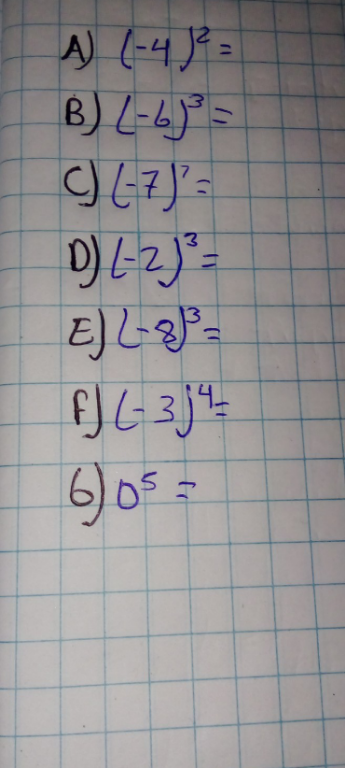 A) (-4)² =
B) (-6)³ =
C) (-7)⁷ =
D) (-2)³ =
E) (-8)³ =
F) (-3)⁴ =
G) 0⁵ =